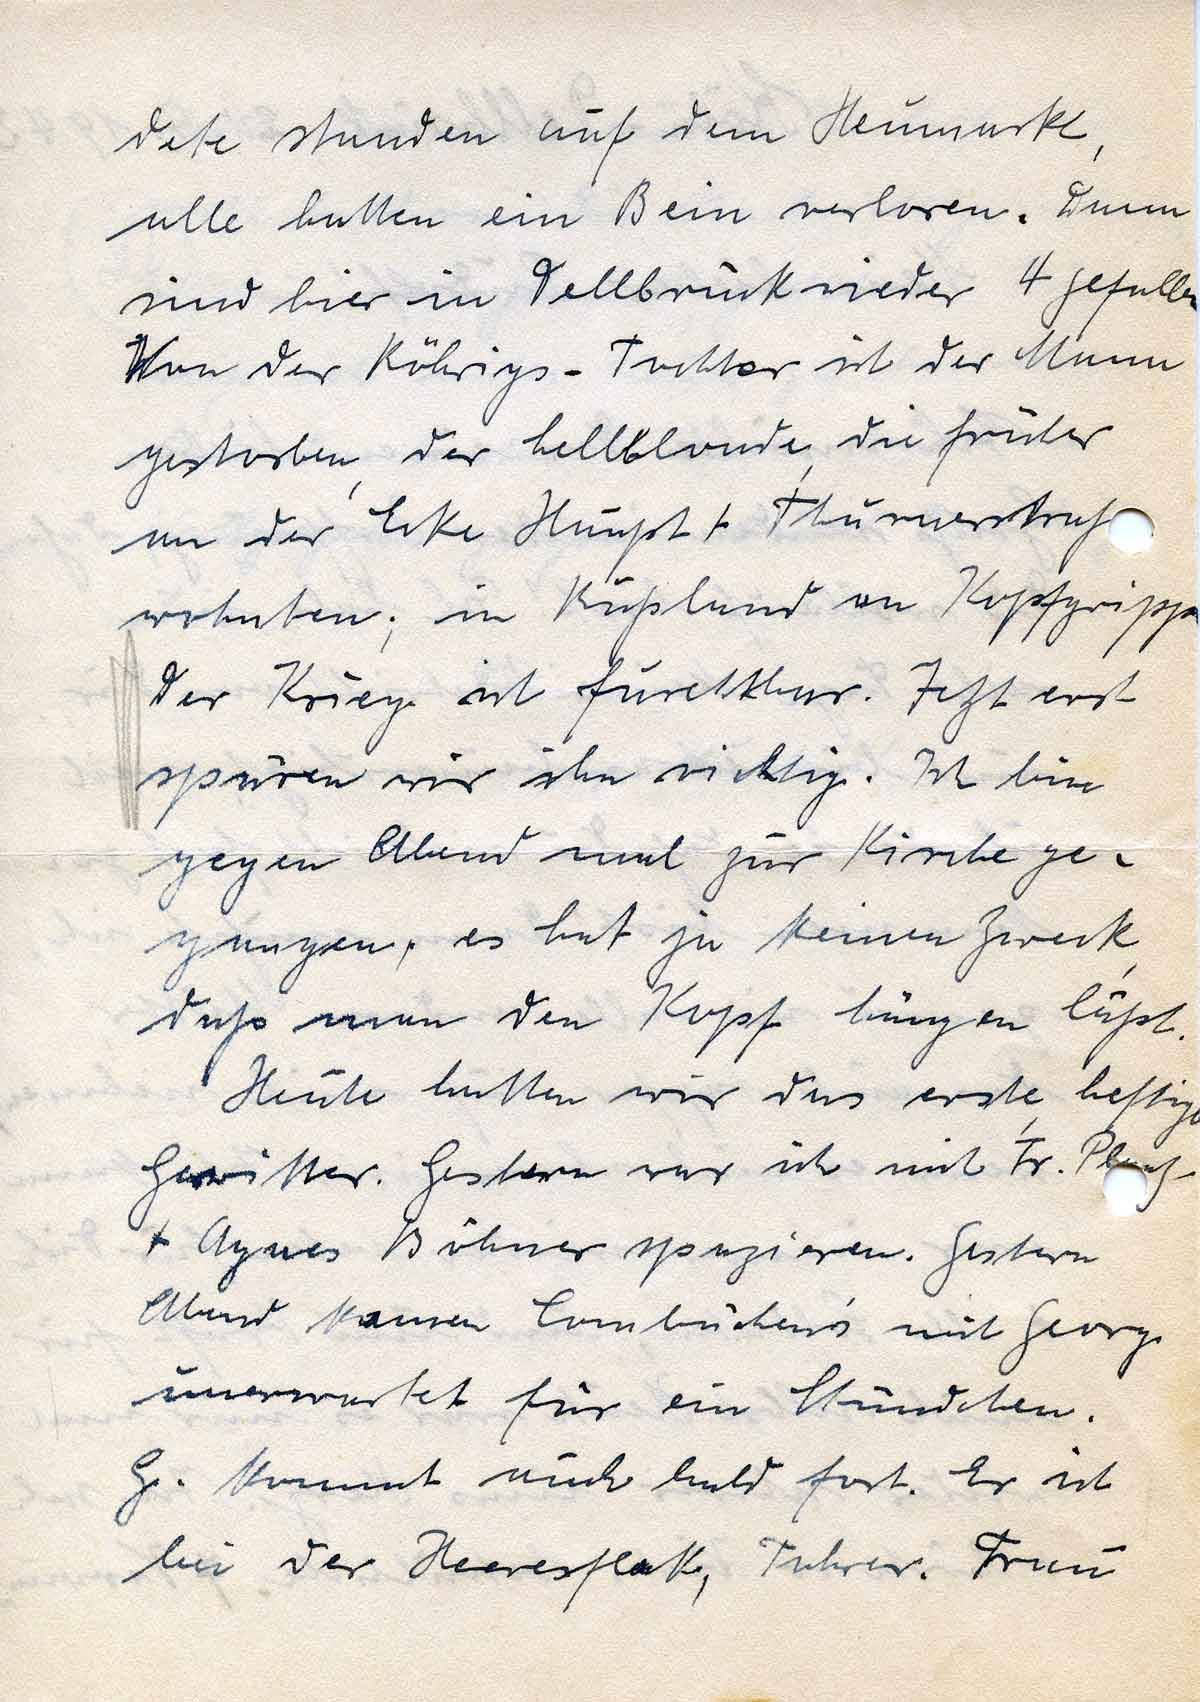 dete standen auf dem Heumarkt,
alle hatten ein Bein verloren. Dann
sind hier in Dellbrück wieder 4 gefallen
Von der Röhrigs-Tochter ist der Mann
gestorben, der hellblonde, die früher
an der Ecke Haupt + Thurnerstraß
wohnten; in Rußland an Kopfgrippe
Der Krieg ist furchtbar. Jetzt erst
spüren wir ihn richtig. Ich bin
gegen Abend mal zur Kirche ge-
gangen, es hat ja keinen Zweck,
daß man den Kopf hängen läßt.
Heute hatten wir das erste, heftige
Gewitter. Gestern war ich mit Fr.
+ Agnes Böhner spazieren. Gestern
Abend kamen Combüchen's mit Georg
unerwartet für ein Stündchen.
G. kommt auch bald fort. Er ist
bei der Heeresflak, Fahrer. Frau